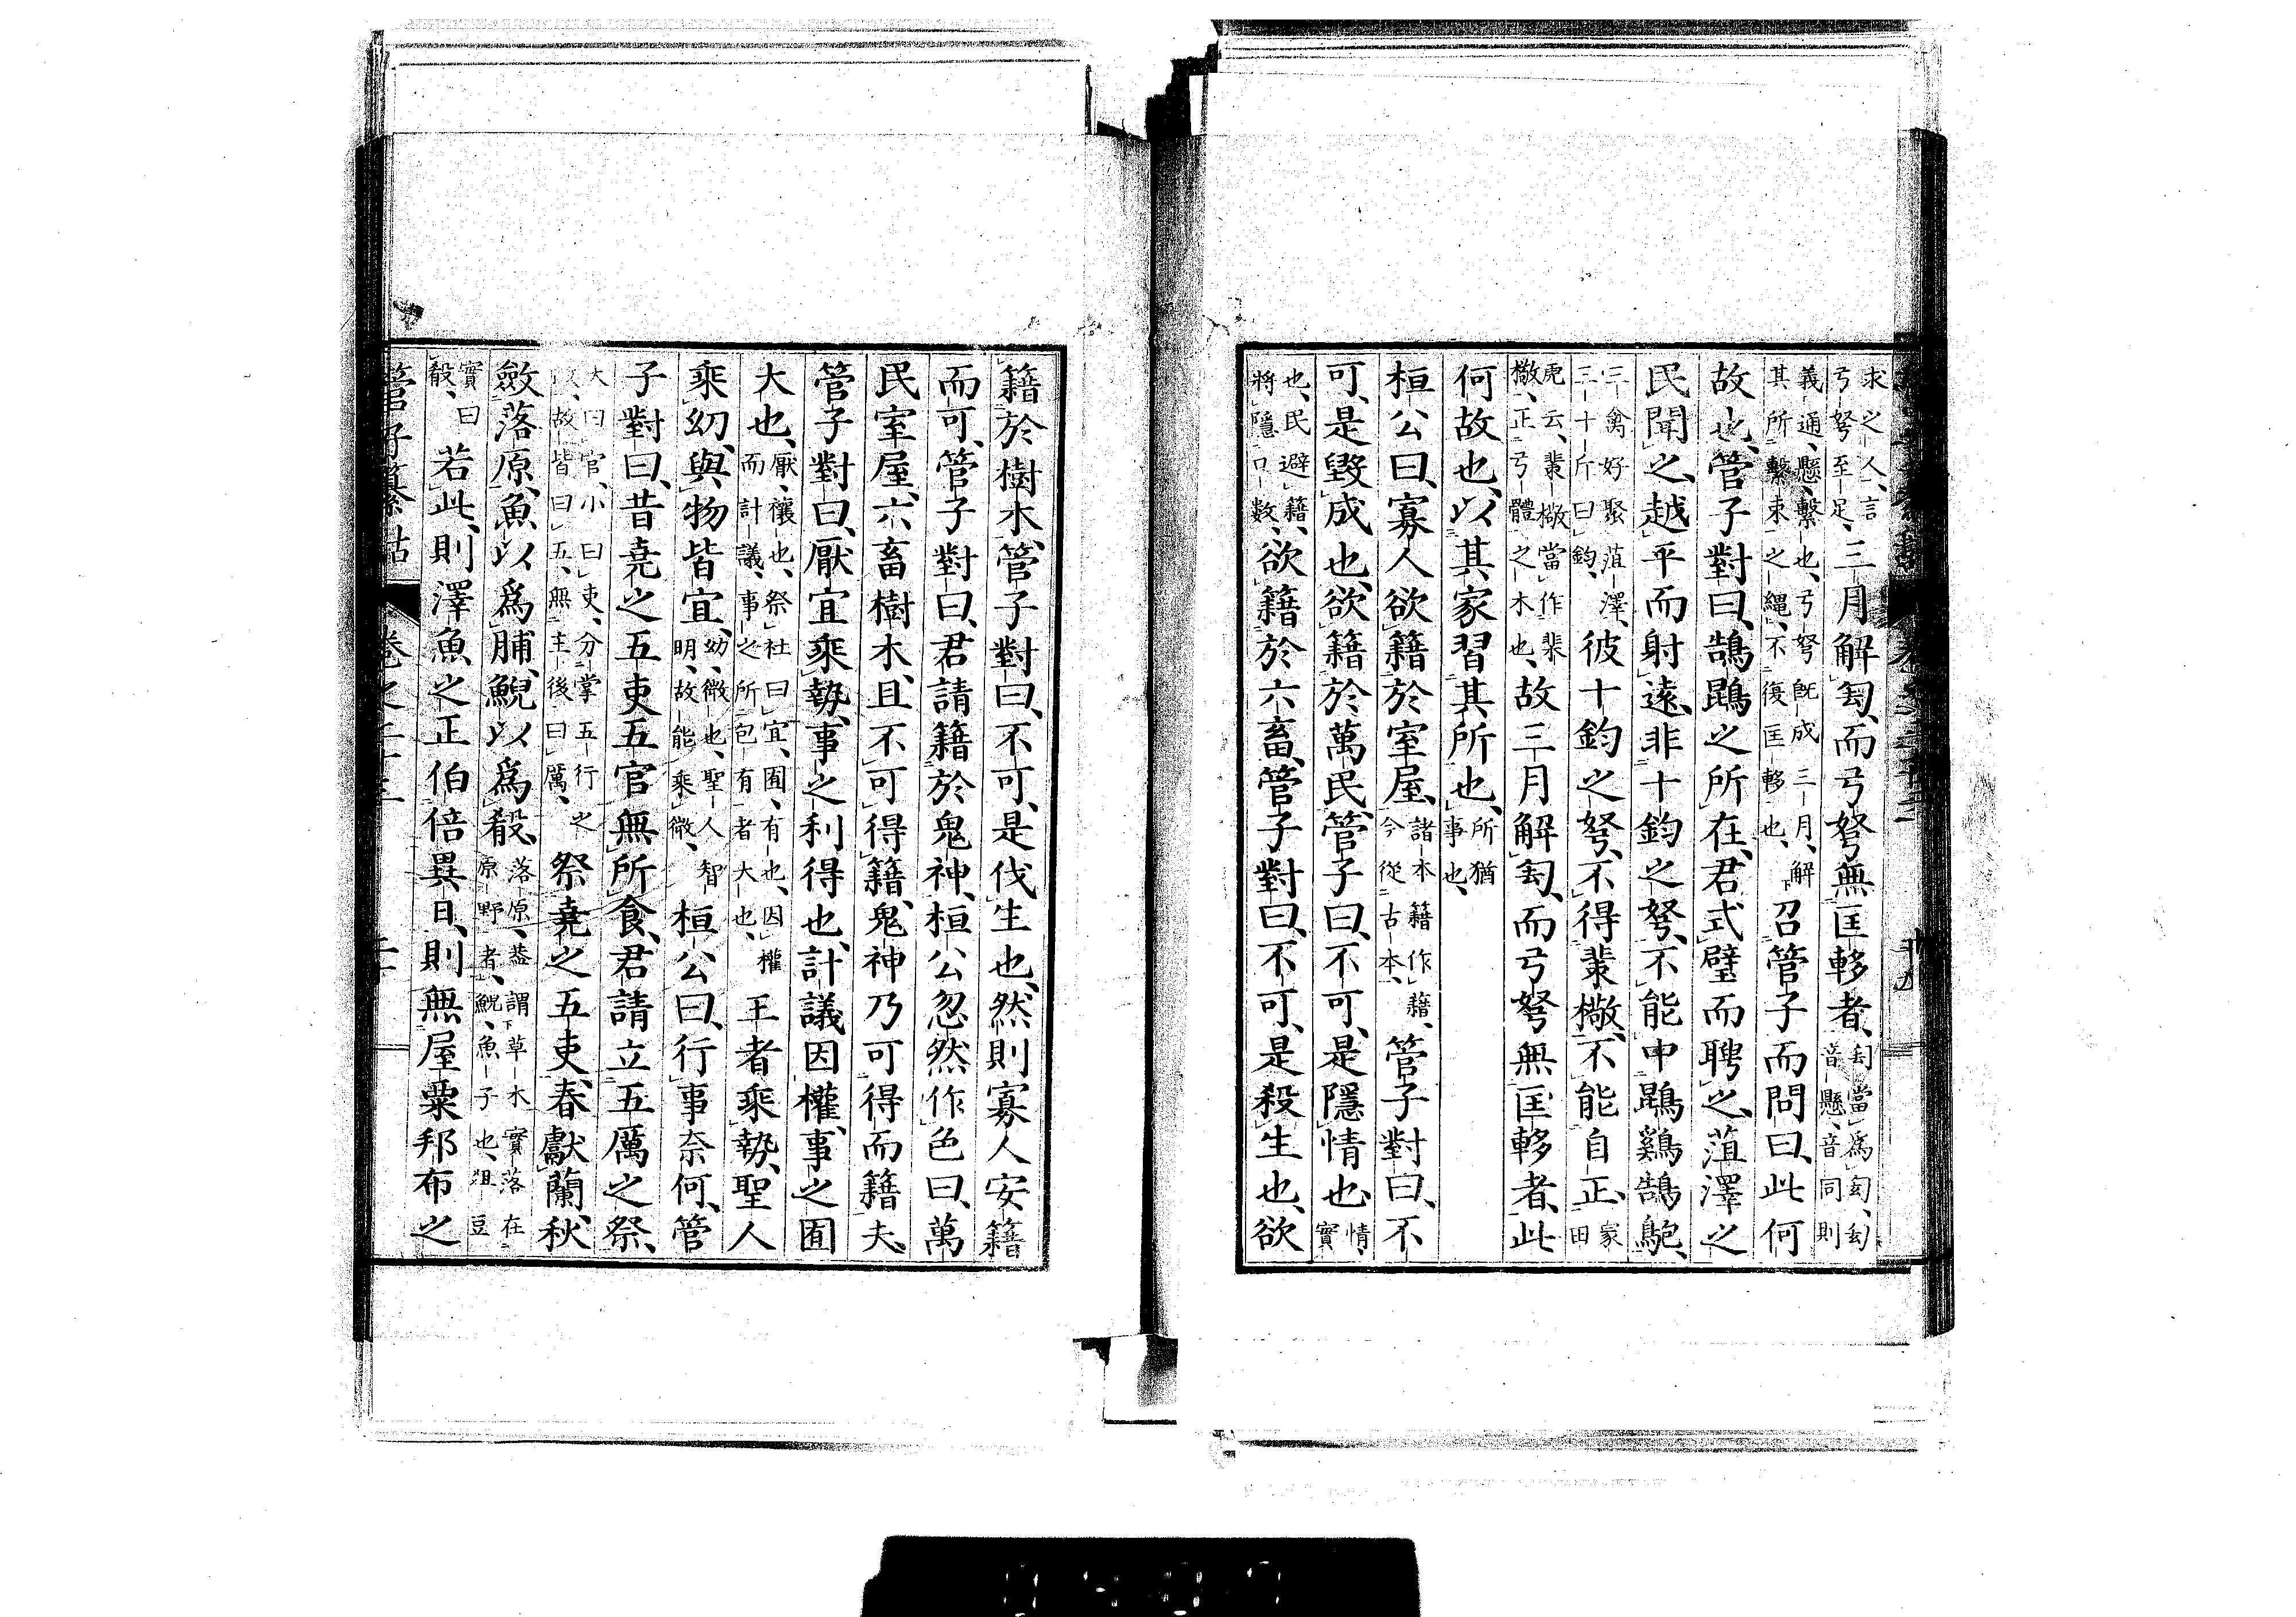 求之人、言弓弩至足、三月解匄、而弓弩無匡軫者、匄當爲匃、匃音懸、音同則
義通、懸、繫也、弓弩既成三月、解其所繫束之繩、不復匡軫也、召管子而問曰、此何
故也、管子對曰、鵠鵾之所在、君式璧而聘之、菹澤之
民聞之、越平而射遠、非十鈞之弩、不能中鵾鷄鵠鴇、
三禽好聚菹澤、三十斤曰鈞、彼十鈞之弩、不得棐檄、不能自正、家田
虎云、棐檄當作棐檄、正弓體之木也、故三月解匄、而弓弩無匡軫者、此
何故也、以其家習其所也、所猶事也、
桓公曰、寡人欲籍於室屋、諸本籍作藉、今從古本、管子對曰、不
可、是毀成也、欲籍於萬民、管子曰、不可、是隱情也、情、實
也、民避籍、將隱口數、欲籍於六畜、管子對曰、不可、是殺生也、欲
籍於樹木、管子對曰、不可、是伐生也、然則寡人安籍
而可、管子對曰、君請籍於鬼神、桓公忽然作色曰、萬
民室屋、六畜樹木、且不可得籍、鬼神乃可得而籍夫、
管子對曰、厭宜乘勢、事之利得也、計議因權、事之囿
大也、厭、禳也、祭社曰宜、囿、有也、因權而計議、事之所包有者大也、王者乘勢、聖人
乘幼、與物皆宜、幼、微也、聖人智明、故能乘微、桓公曰、行事奈何、管
子對曰、昔堯之五吏五官無所食、君請立五厲之祭、
大曰官、小曰吏、分掌五行之故、皆曰五、無主後曰厲、祭堯之五吏、春獻蘭、秋
斂落原、魚以爲脯、鯢以爲殽、落原、蓋謂草木實落在原野者、鯢、魚子也、俎豆
實曰殽、若此、則澤魚之正伯倍異日、則無屋粟邦布之
管子纂詁 卷之二十三